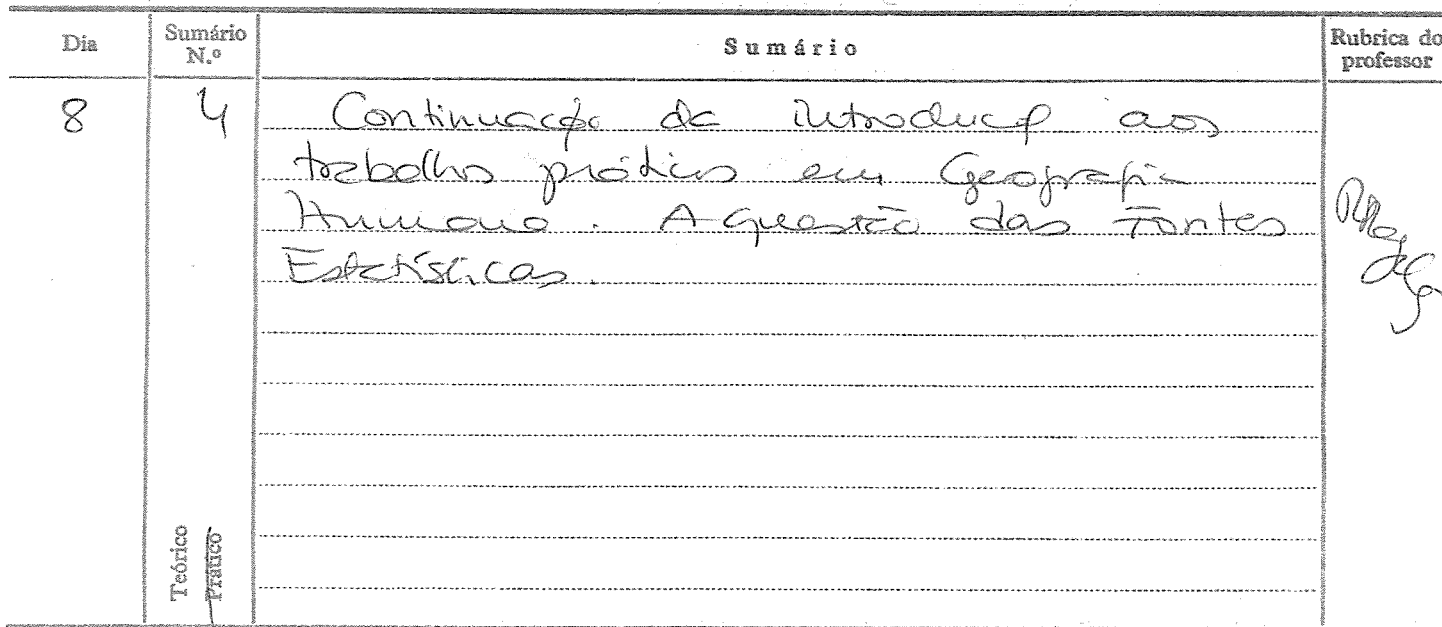 Dia
Sumário N.º
Sumário
Rubrica do professor
8
4
Continuação da introdução aos
trabalhos práticos em Geografia
Humana. A questão das Fontes
Estatísticas.
Teórico
Prático